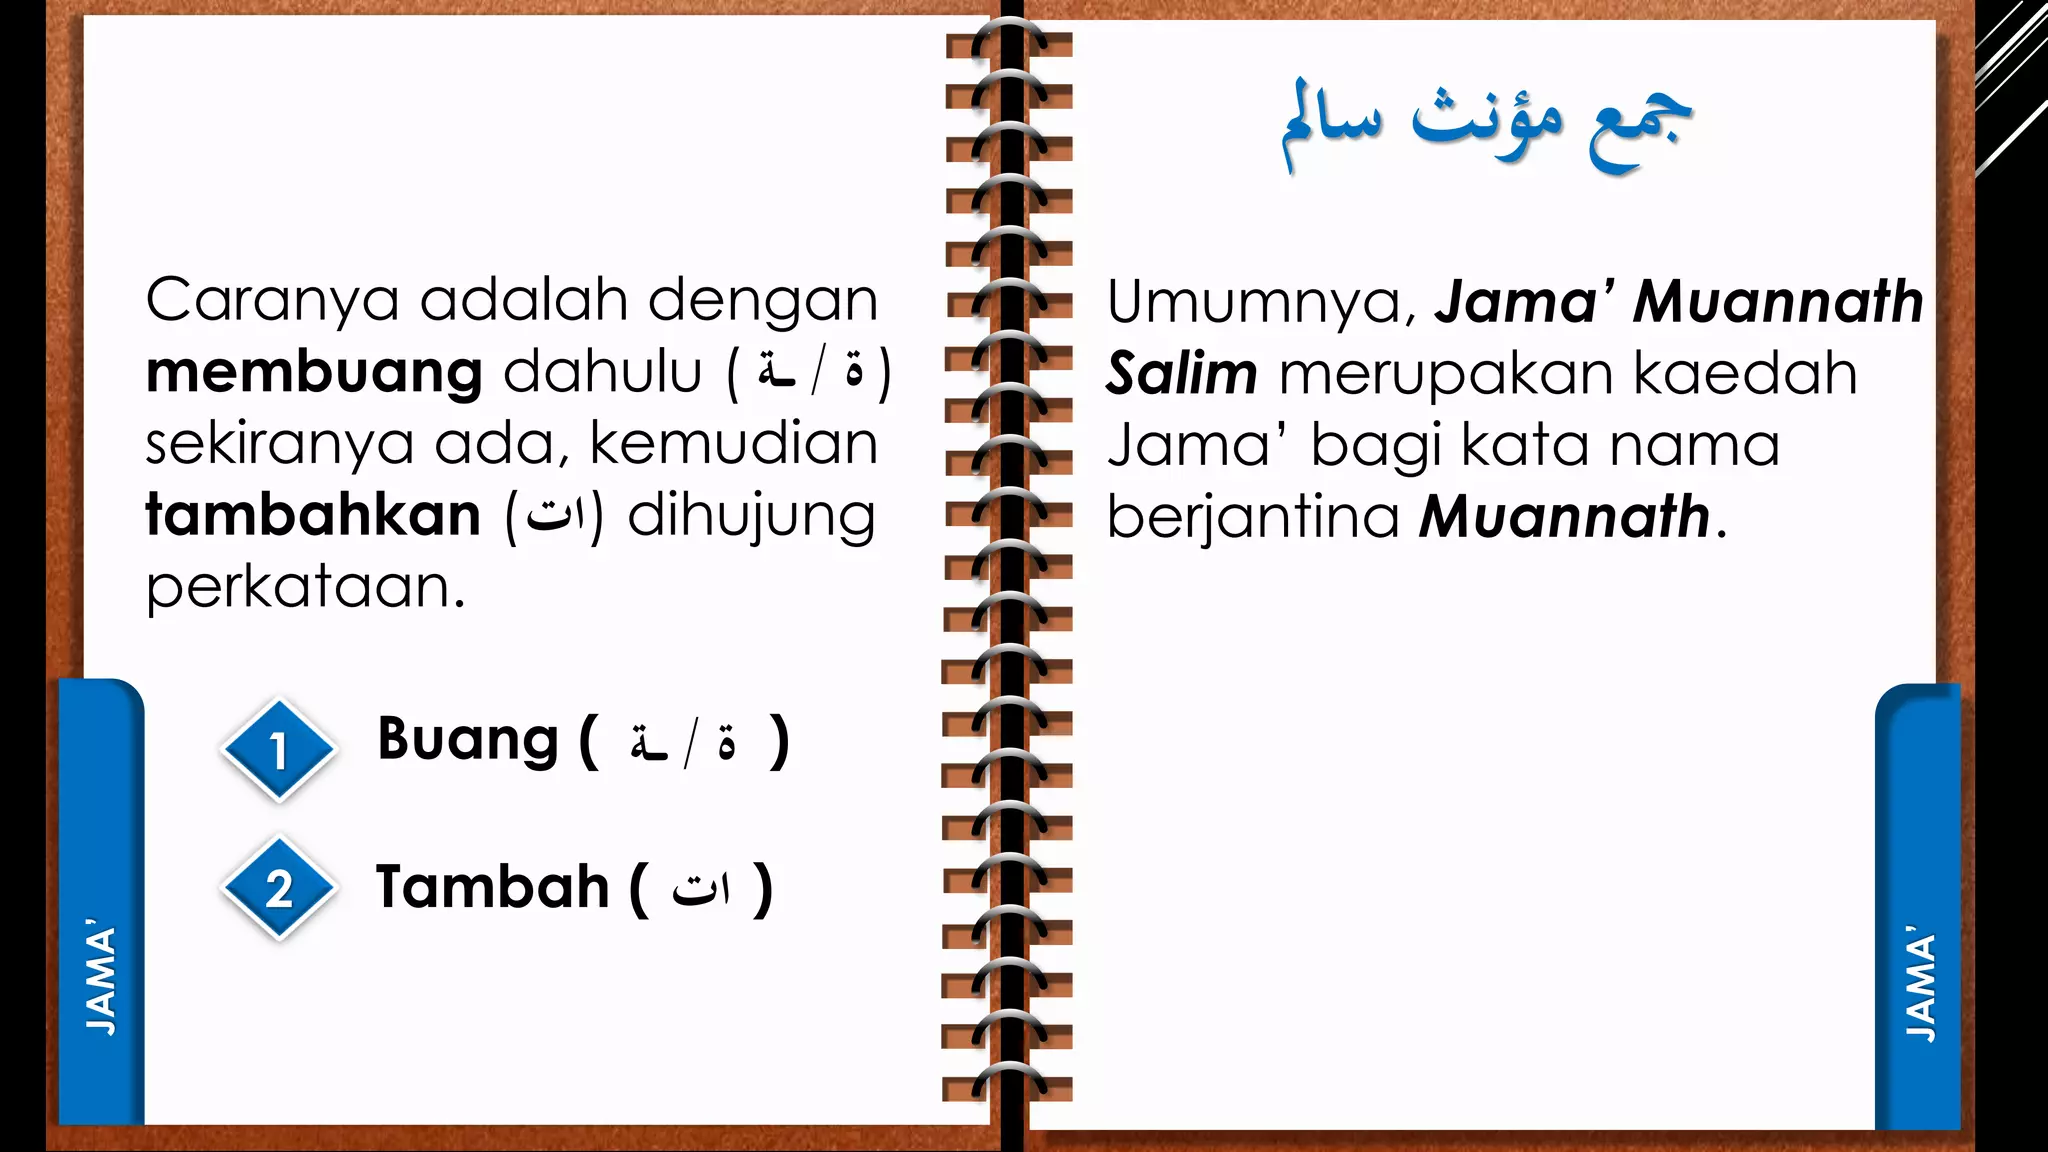 جمع مؤنث سالم
Umumnya, Jama’ Muannath
Salim merupakan kaedah
Jama’ bagi kata nama
berjantina Muannath.
JAMA’
Caranya adalah dengan
membuang dahulu ( ة / ـة )
sekiranya ada, kemudian
tambahkan (ات) dihujung
perkataan.
1 Buang ( ة / ـة )
2 Tambah ( ات )
JAMA’